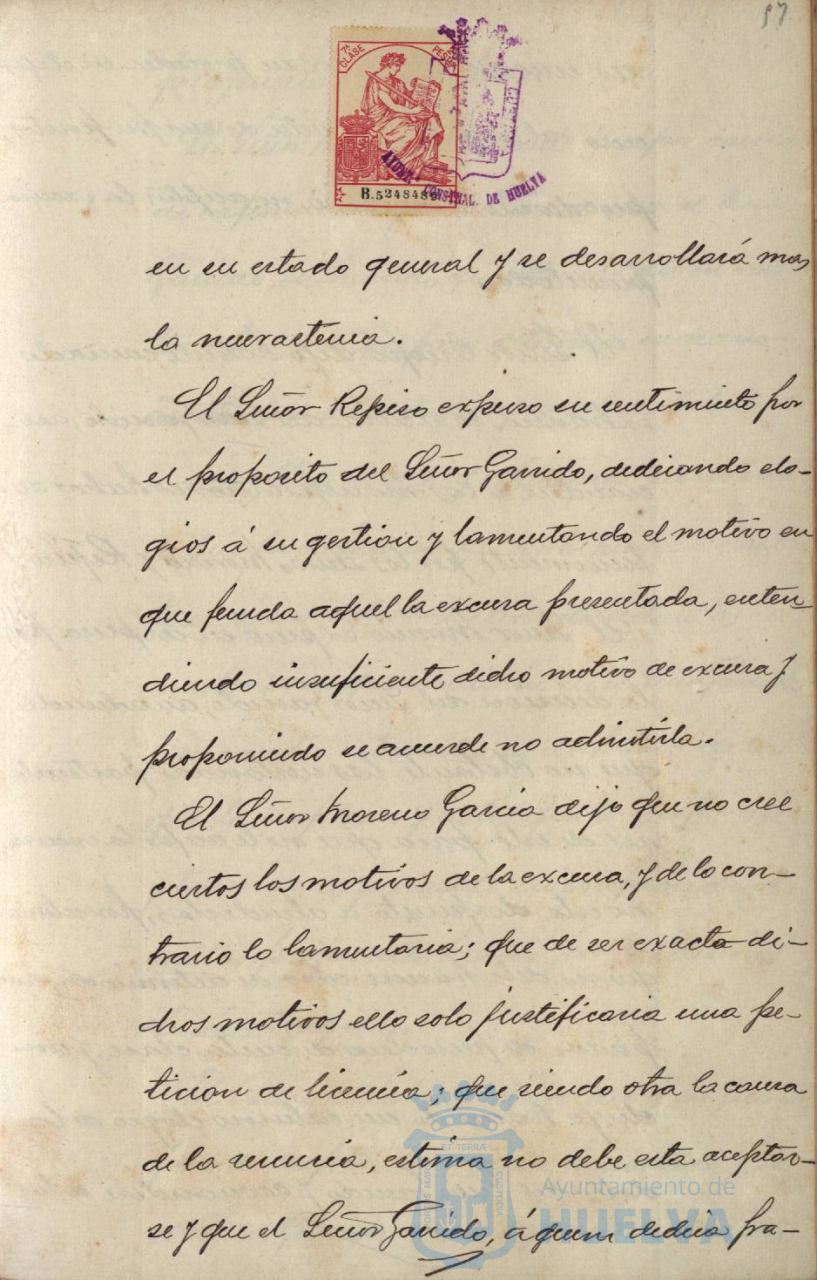 57
7ª CLASE
PESE
B.5248489
AYUNT. CONSTNAL. DE HUELVA
en su estado general y se desarrollará mas
la neurastenia.
El Señor Repiso expuso su sentimiento por
el proposito del Señor Garrido, dedicando elo-
gios á su gestion y lamentando el motivo en
que funda aquel la excusa presentada, enten-
diendo insuficiente dicho motivo de excusa y
proponiendo se acuerde no admitirla.
El Señor Moreno Garcia dijo que no cree
ciertos los motivos de la excusa, y de lo con-
trario lo lamentaria; que de ser exacta di-
chos motivos ello solo justificaria una pe-
ticion de licencia; que siendo otra la causa
de la renuncia, estima no debe esta aceptar-
se y que el Señor Garrido, á quien dedica fra-
Ayuntamiento de
HUELVA